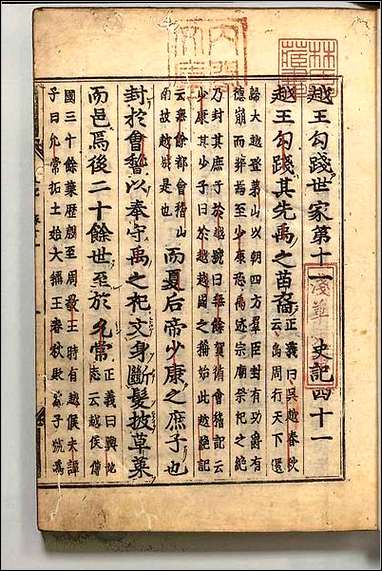 林氏
藏書
淺草
越王勾踐世家第十一　史記四十一
越王勾踐其先禹之苗裔
正義曰吳越春秋
云禹周行天下還
歸大越登茅山以朝四方羣臣封有功爵有
德崩而葬焉至少康恐禹迹宗廟祭祀之絶
乃封其庶子於越號曰無餘賀循會稽記云
少康其少子号曰於越越國之稱始此越絶記
云無餘都會稽山
南故越城是也
而夏后帝少康之庶子也
封於會稽以奉守禹之祀文身斷髮披草萊
而邑焉後二十餘世至於允常
正義曰輿地
志云越侯傳
國三十餘葉歴殷至周敬王時有越侯夫譚
子曰允常拓土始大稱王春秋貶爲子號爲